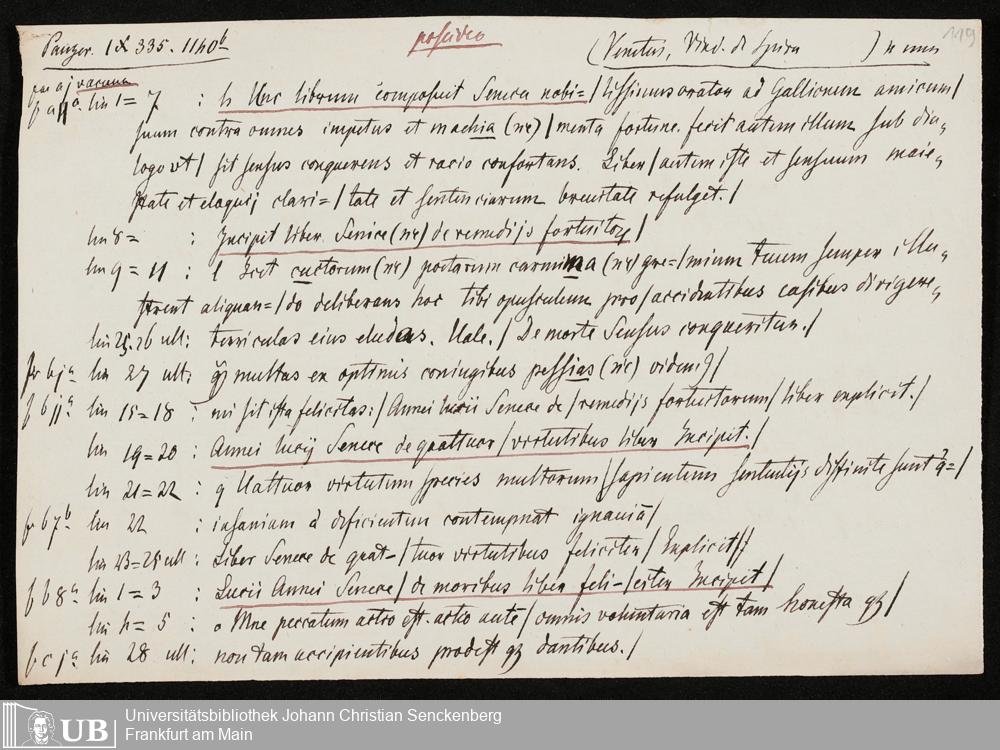 Panzer. IX 335. 1140b possideo (Venetus, Vind. di Spira ) n 119
a j vacuum
f a jj a. lin 1= 7 : h Unc librum composuit Seneca nobi= / lissimus orator ad Gallionem amicum /
suum contra omnes impetus et machia (sic) / menta fortune. fecit autem illum sub dia„
logo vt / sit sensus conquerens et racio confortans. Liber / autem iste et sensuum maie„
state et eloquij clari= / tate et sentenciarum breuitate refulget. /
lin 8= : Incipit liber Senice (sic) de remedijs fortuitorꝝ /
lin 9 = 11 : l Icet cuctorum (sic) poetarum carmina (sic) gre= / mium tuum semper illu„
strent aliquan= / do deliberans hoc tibi opusculum pro / accidentibus casibus dirigere„
lin 25. 26 ult: terriculas eius eludas. Uale. / De morte Sensus conqueritur. /
f b j a lin 27 ult: ꝙ multas ex optimis coniugibus pessias (sic) videm9 /
f b jj a lin 15=18 : mi sit ista felicitas: / Annei lucii Senece de / remedijs fortuitorum / liber explicit. /
lin 19=20 : Annei lucij Senece de quattuor / virtutibus liber Incipit. /
lin 21=22 : q Uattuor virtutum species multorum / sapientum sententijs diffinite sunt q= /
f b 7 b lin 22 : insaniam a deficientem contempnat ignauiā /
lin 23=25 ult : Liber Senece de quat= / tuor virtutibus feliciter / Explicit //
f b 8 a lin 1=3 : Lucii Annei Senece / de moribus liber feli= / citer Incipit /
lin 4= 5 : o Mne peccatum actio est. actio aute / omnis voluntaria est tam honesta qz /
f c j a lin 28 ult: non tam accipientibus prodest qz dantibus. /
UB Universitätsbibliothek Johann Christian Senckenberg
Frankfurt am Main